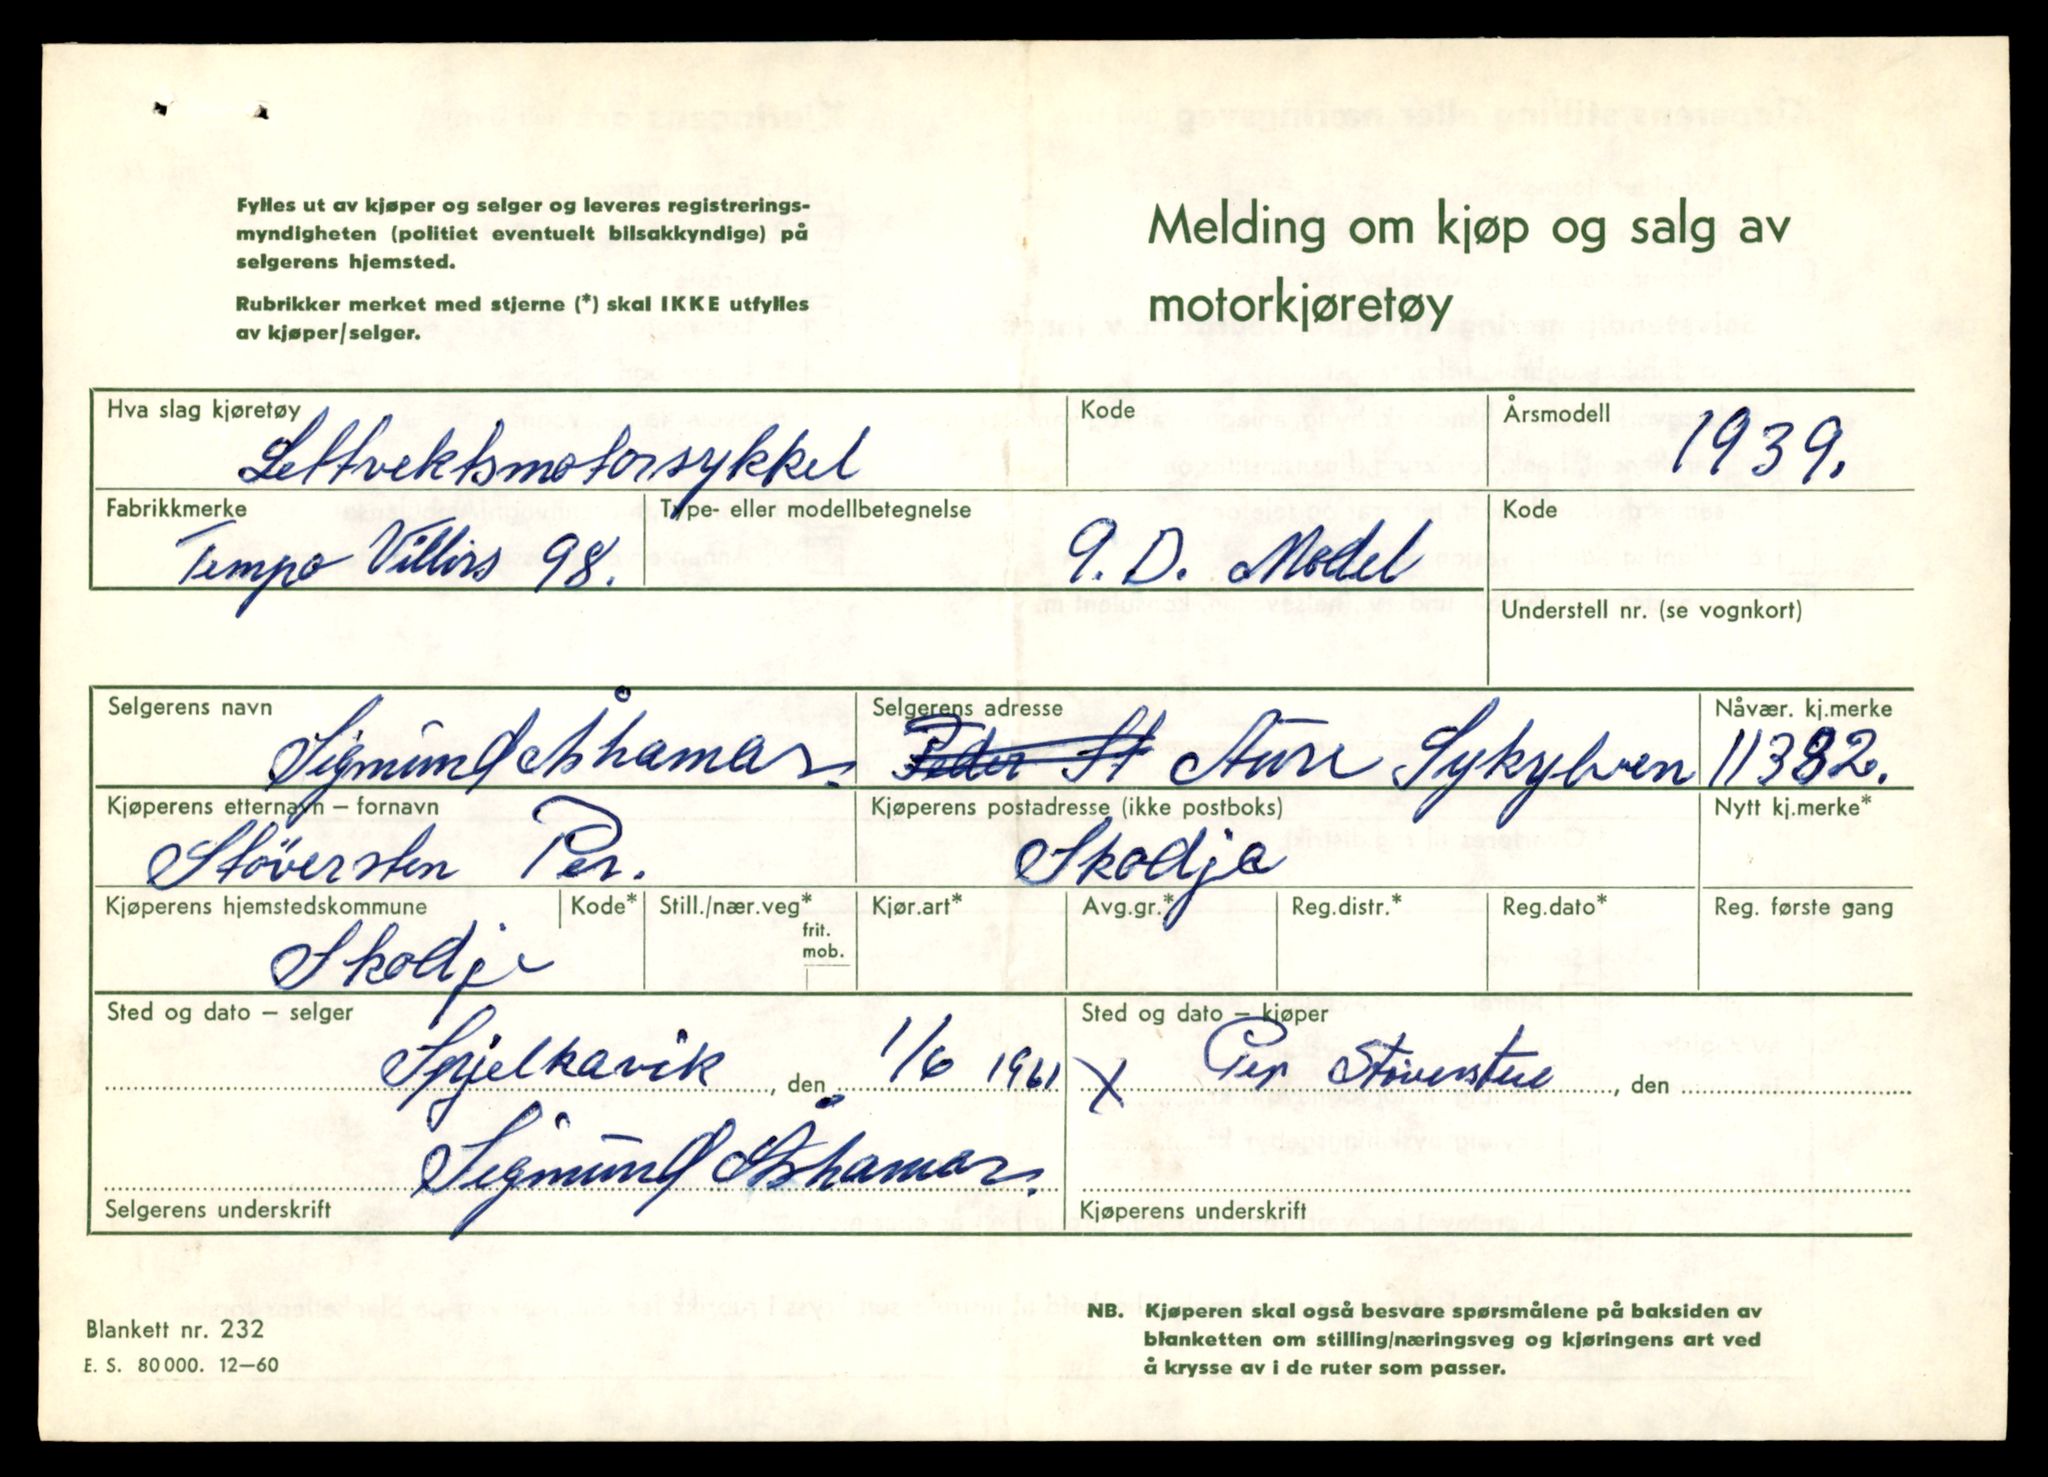 Fylles ut av kjøper og selger og leveres registrerings-
myndigheten (politiet eventuelt bilsakkyndige) på
selgerens hjemsted.
Rubrikker merket med stjerne (*) skal IKKE utfylles
av kjøper/selger.
Melding om kjøp og salg av
motorkjøretøy
Hva slag kjøretøy Kode Årsmodell
Lettvektsmotorsykkel 1939.
Fabrikkmerke Type- eller modellbetegnelse Kode
Tempo Villirs 98. 9. D. Model
Understell nr. (se vognkort)
Selgerens navn Selgerens adresse Nåvær. kj.merke
Sigmund Åshamar. Peder St Aure Sykylven 11382.
Kjøperens etternavn – fornavn Kjøperens postadresse (ikke postboks) Nytt kj.merke*
Støversten Per. Skodje
Kjøperens hjemstedskommune Kode* Still./nær.veg* Kjør.art* Avg.gr.* Reg.distr.* Reg.dato* Reg. første gang
frit.
mob.
Skodje
Sted og dato – selger Sted og dato – kjøper
Spjelkavik, den 1/6 1961 X Per Støversten, den
Sigmund Åshamar.
Selgerens underskrift Kjøperens underskrift
Blankett nr. 232
E. S. 80 000. 12–60
NB. Kjøperen skal også besvare spørsmålene på baksiden av
blanketten om stilling/næringsveg og kjøringens art ved
å krysse av i de ruter som passer.